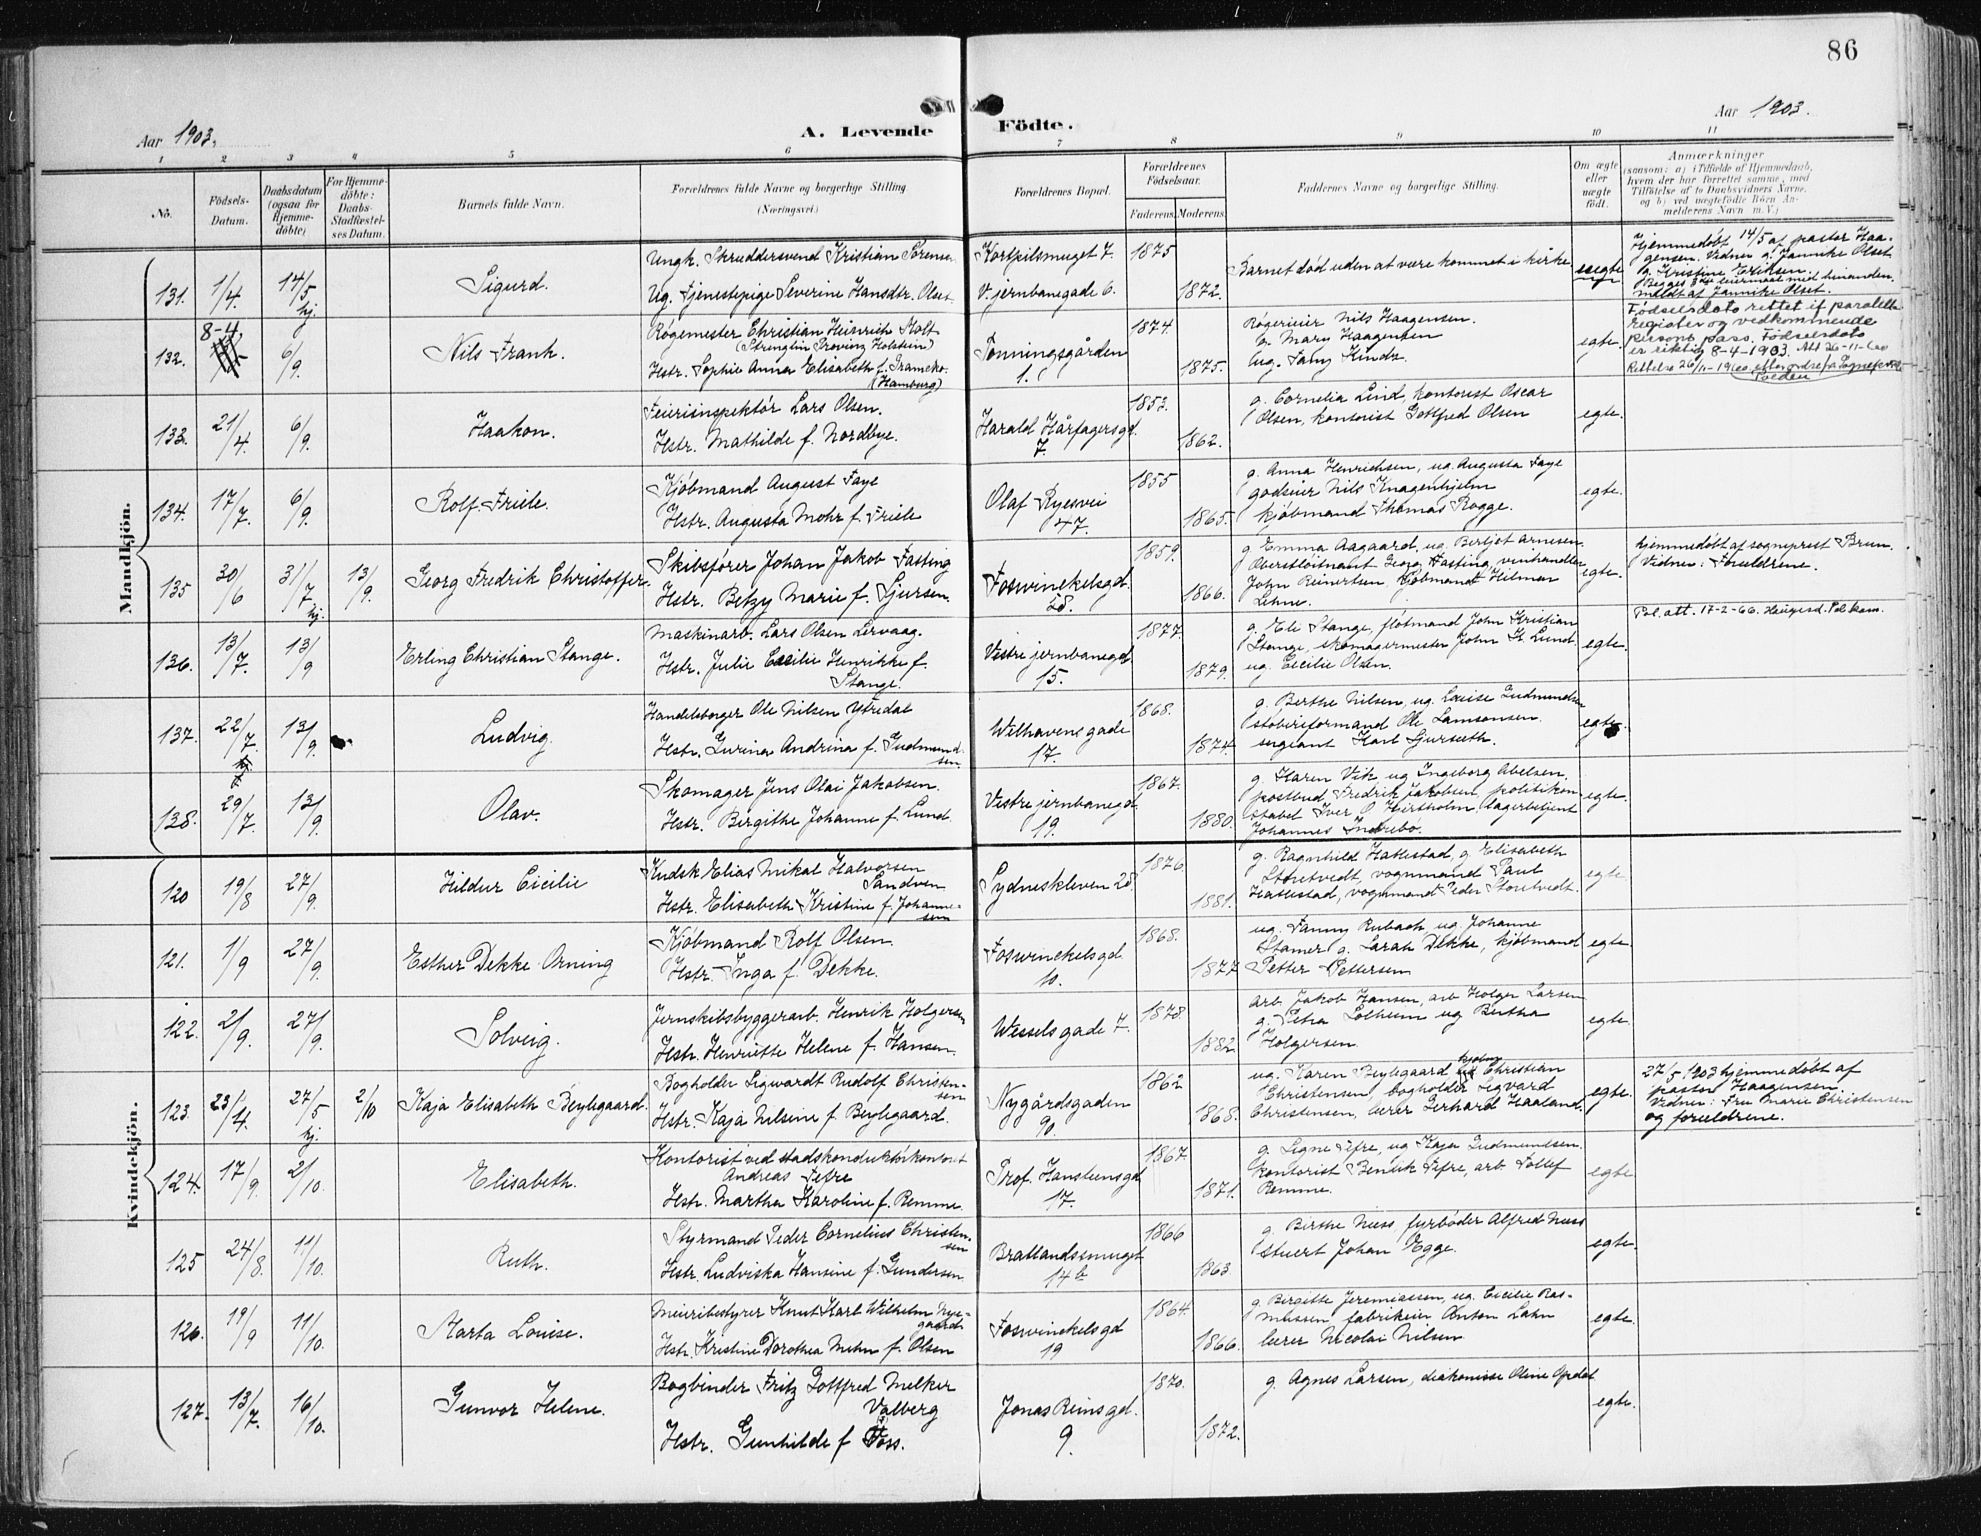 86
Aar 1903.
A. Levende Födte.
Aar 1903.
1 2 3 4 5 6 7 8 9 10 11
No.
Födsels-
Datum.
Daabsdatum
(ogsaa for
Hjemme-
döbte)
For Hjemme-
döbte:
Daabs-
Stadfæstel-
ses Datum.
Barnets fulde Navn.
Forældrenes fulde Navne og borgerlige Stilling
(Næringsvei.)
Forældrenes Bopæl.
Forældrenes
Födselsaar.
Faderens. Moderens.
Faddernes Navne og borgerlige Stilling.
Om ægte
eller
uægte
födt.
Anmærkninger
(saasom: a) i Tilfælde af Hjemmedaab,
hvem der har forrettet samme, med
Tilföielse af to Daabsvidners Navne.
og b) ved uægtefödte Börn An-
melderens Navn m.V.)
Mandkjön.
131. 1/4. 14/5 hj. Sigurd.
Ungk. Skræddersvend Kristian Sørense
Ug. Tjenestepige Severine Hansdtr. Olset
Kortpilsmuget 7.
V. jernbanegade 6.
1875
1872.
Barnet død uden at være kommet i kirke
uegte
Hjemmedøbt 14/5 af pastor Haa-
gensen. Vidner g. Jannike Olset
g. Kristine Eriksen.
Begges 1ste leiermaal med hinanden.
meldt af Jannike Olset.
132. 8-4. 6/9. Nils Frank.
Røgemester Christian Heinrich Molt
(Strenglin Provinz Holstein)
Hstr. Sophie Anna Elisabeth f. Grancko.
(Hamburg)
Tonningsgården
1.
1874
1875.
Røgerieier Nils Haagensen.
g. Mary Haagensen
ug. Fany Kindt.
egte.
Fødselsdato rettet if paralell
register og vedkommende
persons pass. Fødselsdato
er riktig 8-4-1903. Att 26-11-60
133. 21/4. 6/9. Haakon.
Feierinspektør Lars Olsen.
Hstr. Mathilde f. Nordbye.
Harald Hårfagersgd.
7.
1853.
1862.
g. Cornelia Lind, kontorist Oscar
Olsen, kontorist Gottfred Olsen
egte.
134. 17/7. 6/9. Rolf Friele.
Kjøbmand August Faye
Hstr. Augusta Mohr f. Friele
Olaf Ryesvei
47.
1855
1865.
g. Anna Henrichsen, ug. Augusta Faye
godseier Nils Knagenhjelm
kjøbmand Thomas Rogge.
egte.
135 30/6 31/7 hj. 13/9. Georg Fredrik Christoffer.
Skibsfører Johan Jakob Fasting
Hstr. Betzy Marie f. Sjursen.
Foswinckelsgd.
58.
1859.
1866.
g. Emma Aagaard, ug. Berljot Arnesen
Oberstløitnant Georg Fasting, vinhandler
John Reinertsen, kjøbmand Hilmar
Lehne.
egte.
hjemmedøbt af sogneprest Brun.
Vidner: Forældrene.
136. 13/7. 13/9 Erling Christian Stange.
Maskinarb. Lars Olsen Lervaag.
Hstr. Julie Cecilie Henrikke f.
Stange.
Vestre jernbanegd
15.
1877.
1879.
g. Eli Stange, fløtmand John Kristian
Stange, skomagermester John H. Lund.
ug. Cecilie Olsen.
egte.
Pol. att. 17-2-66. Haugesd. Pol.kam.
137. 22/7. 13/9. Ludvig.
Handelsborger Ole Nilsen Ytredal
Hstr. Gurina Andrina f. Gudmund
sen.
Welhavens gade
17.
1868.
1874.
g. Berthe Nilsen, ug. Louise Gudmundsen
støberiformand Ole Samsonsen.
sergeant Karl Gjerseth.
egte.
138. 29/7. 13/9. Olav.
Skomager Jens Olai Jakobsen.
Hstr. Birgithe Johanne f. Lund.
Vestre jernbanegd.
19.
1867.
1880.
g. Karen Vik ug Ingeborg Abelsen.
postbud Fredrik Jakobsen, politikon
stabel Iver O. Hirtholm, lagerbetjent
Johannes Indrebø.
egte.
Kvindekjön.
120 19/8 27/9. Hildur Cicilie
Kudsk Elias Mikal Halvorsen
Sandven
Hstr. Elisabeth Kristine f. Johanne-
sen
Sydneskleven 25.
1876
1881.
g. Ragnhild Hattestad, g. Elisabeth
Storetvedt, vognmand Paul
Hattestad, vognmand Peder Storetvedt.
egte.
121. 1/9 27/9. Esther Dekke Orning
Kjøbmand Rolf Olsen.
Hstr. Inga f. Dekke.
Foswinckelsgd.
10.
1868.
1877
ug. Fanny Rubach ug Johanne
Stamer g. Sarah Dekke, kjøbmand
Petter Pettersen
egte.
122. 2/9. 27/9. Solveig.
Jernskibsbyggerarb. Henrik Holgersen
Hstr. Henriette Helene f. Hansen.
Wessels gade 7.
1878.
1882.
arb. Jakob Hansen, arb Holger Larsen
g. Petra Solheim ug Bertha
Holgersen.
egte.
123. 23/4. 27/5 hj. 2/10 Kaja Elisabeth Beylegaard.
Bogholder Sigwardt Rudolf Christen-
sen
Hstr. Kaja Nilsine f. Beylegaard.
Nygårdsgaden
90.
1862
1868.
ug. Karen Beylegaard Christian
Christensen, bogholder Sigvard
Christensen, lærer Gerhard Haaland.
egte.
27/5 1903 hjemmedøbt af
pastor Haagensen.
Vidner: Fru Marie Christensen
og forældrene.
124. 17/9. 2/10. Elisabeth.
Kontorist ved stadskonduktørkontoret
Andreas Fefre
Hstr. Martha Karoline f. Remme.
Prof. Hansteensgd
17.
1867
1871.
g. Signe Fefre, ug Kaja Gudmundsen
kontorist Benrik Fefre, arb. Tollef
Remme.
egte
125 24/8. 11/10. Ruth.
Styrmand Peder Cornelius Christen-
sen
Hstr. Ludviska Hansine f. Gundersen
Bratlandssmuget
14b
1866
1863
g. Birthe Næss, fyrbøder Alfred Næss
stuert Johan Egge.
egte.
126. 19/9 11/10. Marta Louise.
Meieribestyrer Knut Karl Wilhelm Nye-
gaard
Hstr. Kristine Dorothea Mehn f. Olsen
Foswinckelsgd
19
1864.
1866.
g. Birgitte Jeremiassen, ug. Cecilie Ras-
mussen, fabrikeier Anton Lahn
lærer Nicolai Nilsen
egte.
127. 13/7. 16/10. Gunvor Helene.
Bogbinder Fritz Gottfred Melker
Valberg
Hstr. Gunhilde f Foss.
Jonas Reins gd.
9.
1870.
1872.
g. Agnes Larsen, diakonisse Oline Opdal
egte.